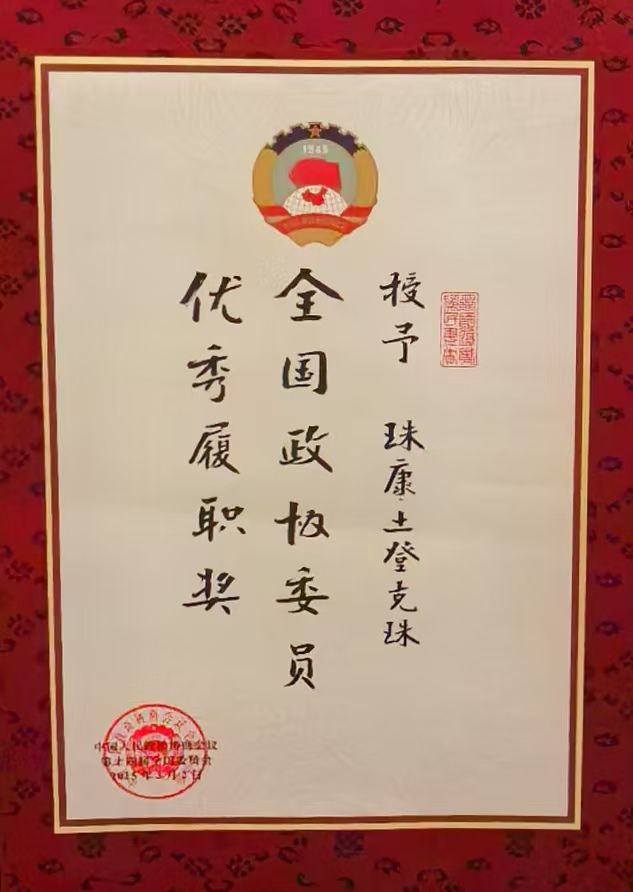 1949
授予 珠康·土登克珠
全国政协委员
优秀履职奖
中国人民政治协商会议
第十四届全国委员会
2025年3月2日